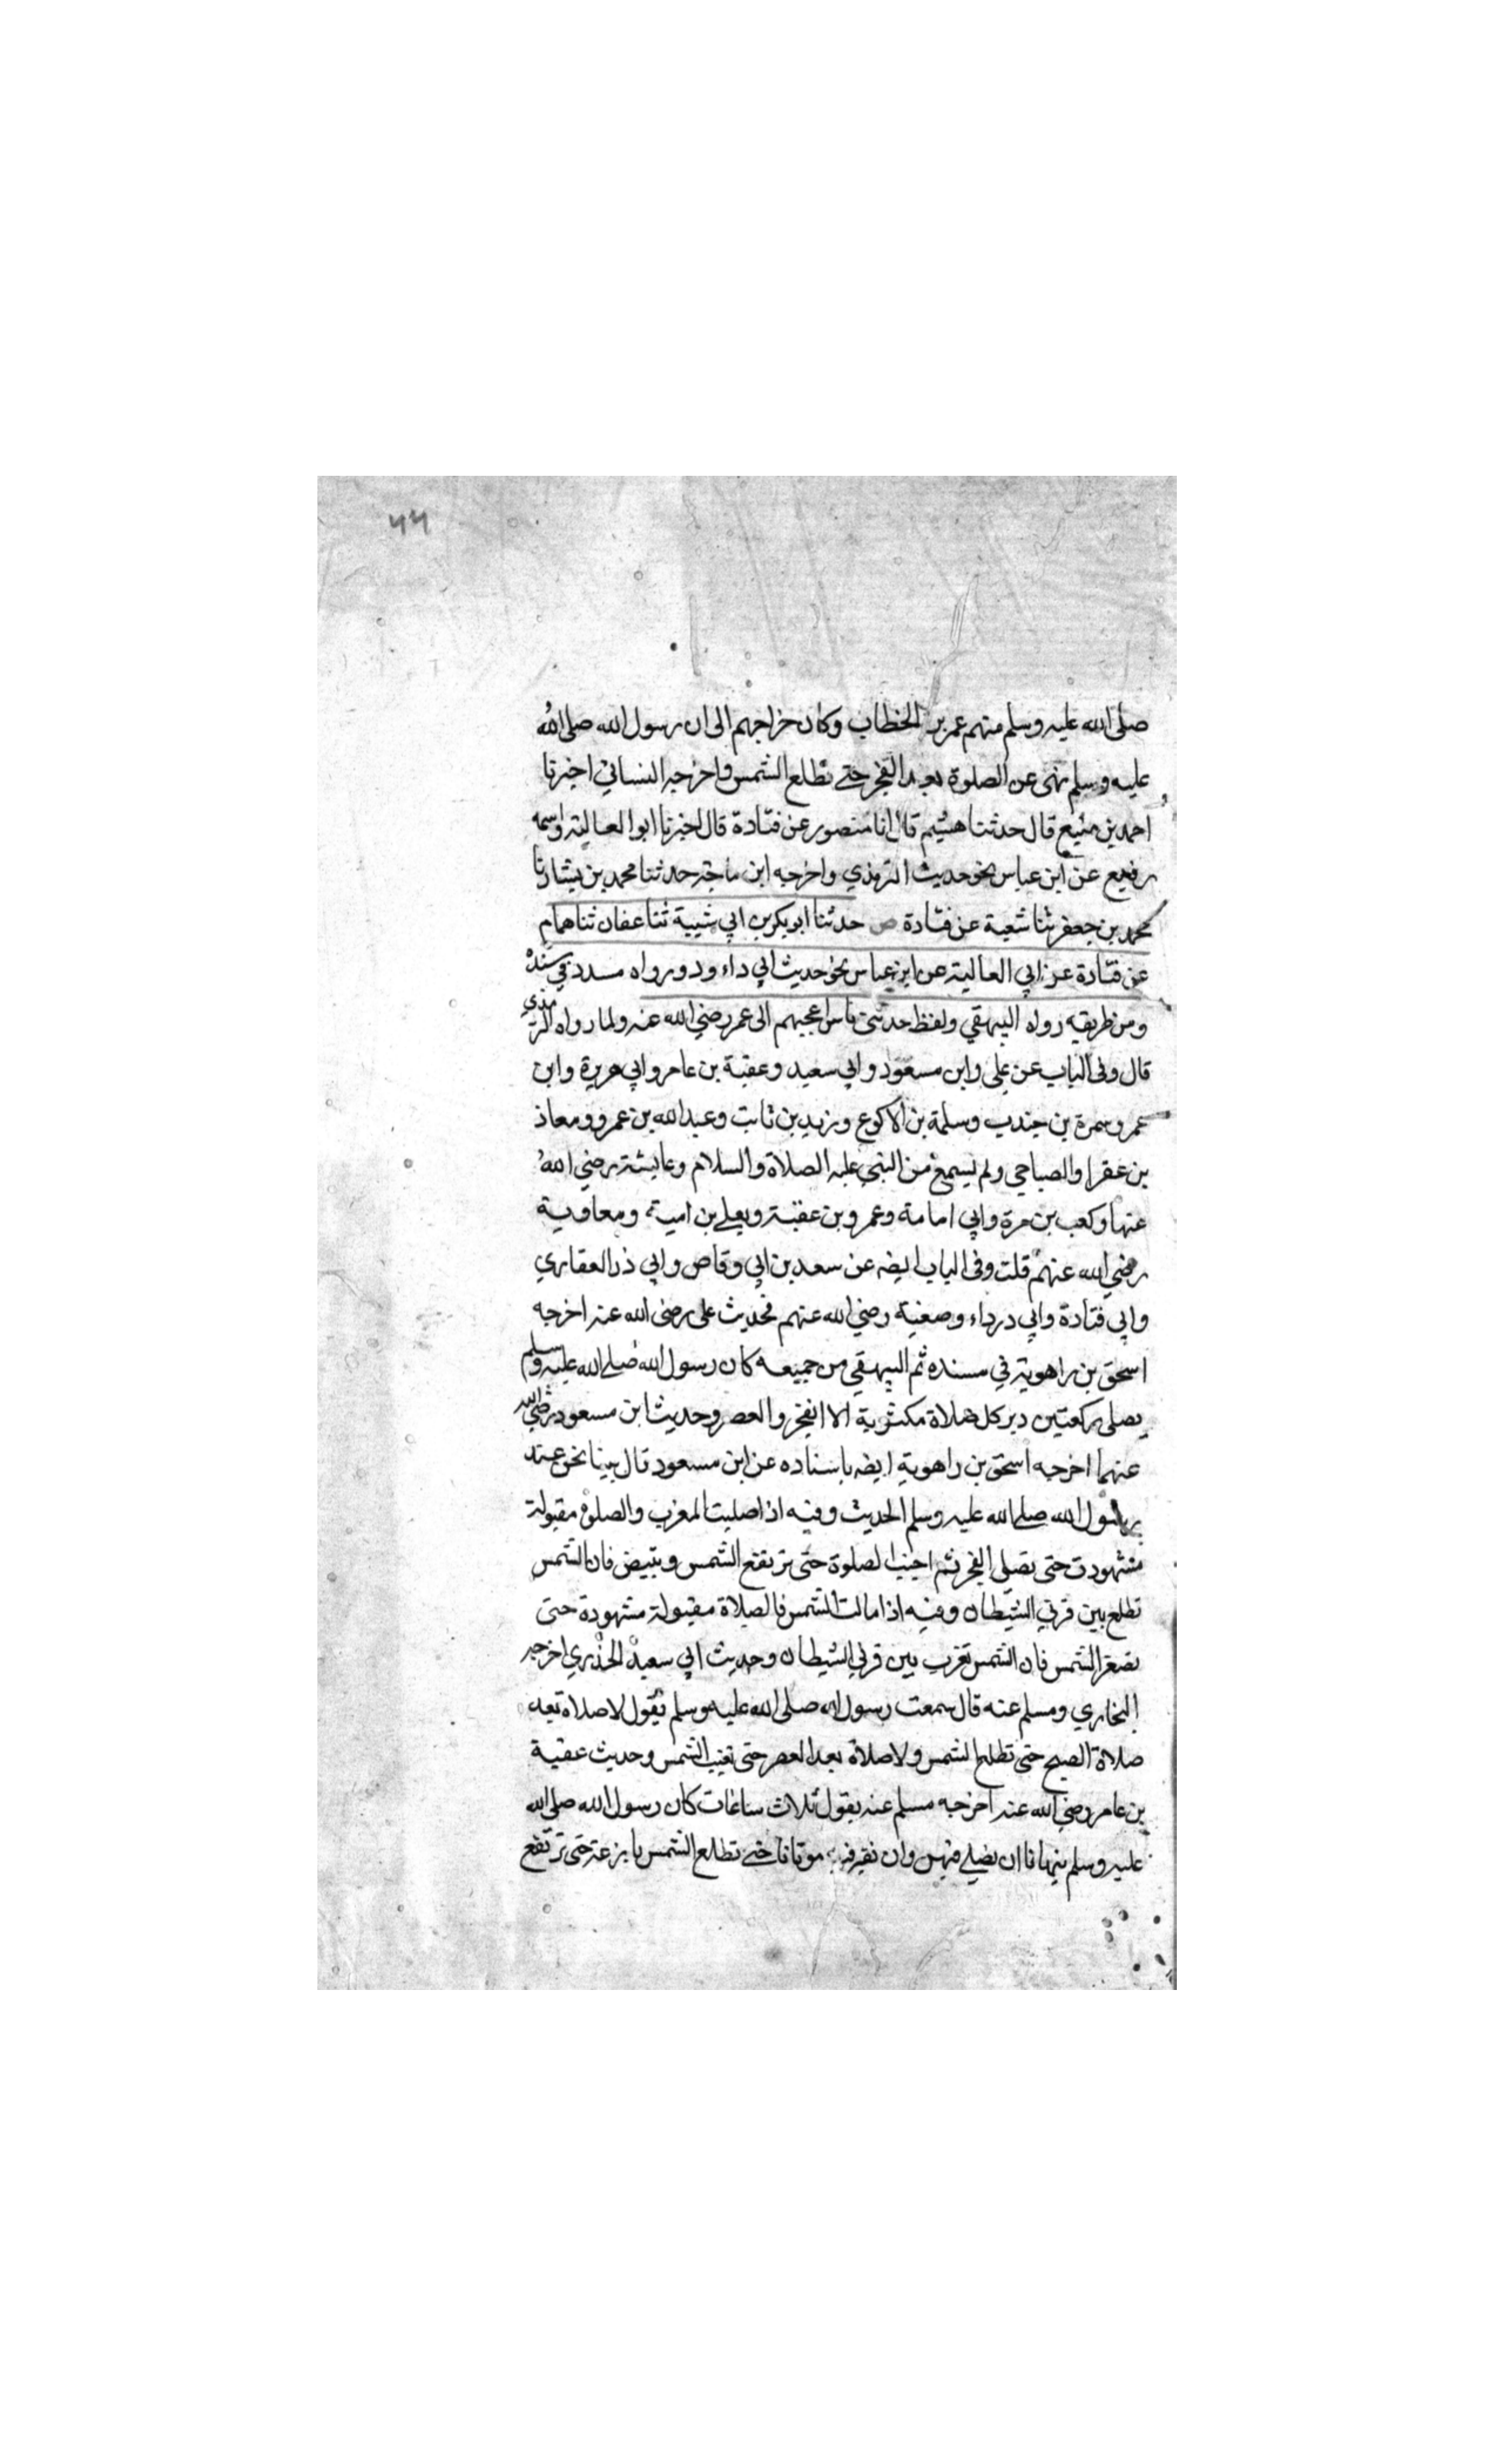 ٤٤
صلى الله عليه وسلم منهم عمر بن الخطاب وكان من اجهم الى ان رسول الله صلى الله
عليه وسلم نهى عن الصلوة بعد الفجر حتى تطلع الشمس واخرجه النسائي اخبرنا
احمد بن منيع قال حدثنا هشيم قال انا منصور عن قتادة قال اخبرنا ابو العالية واسمه
رفيع عن ابن عباس نحو حديث الترمذي واخرجه ابن ماجة حدثنا محمد بن بشار نا
محمد بن جعفر ثنا شعبة عن قتادة ص حدثنا ابو بكر بن ابي شيبة ثنا عفان ثنا همام
عن قتادة عن ابي العالية عن ابن عباس نحو حديث ابي داءود ورواه مسدد في مسنده
ومن طريقه رواه البيهقي ولفظه حدثني ناس اعجبهم الى عمر رضي الله عنه ولما رواه الترمذي
قال وفى الباب عن على وابن مسعود وابي سعيد وعقبة بن عامر وابي هريرة وابن
عمر وسمرة بن جندب وسلمة بن الاكوع وزيد بن ثابت وعبد الله بن عمرو ومعاذ
بن عفرا والصباحي ولم يسمع من النبي عليه الصلاة والسلام وعايشة رضي الله
عنها وكعب بن مرة وابي امامة وعمرو بن عقبة ويعلى بن امية ومعاوية
رضي الله عنهم قلت وفى الباب ايضه عن سعد بن ابي وقاص وابي ذر العفاري
وابي قتادة وابي درداء وصفية رضي الله عنهم فحديث على رضى الله عنه اخرجه
اسحق بن راهوية في مسنده ثم البيهقي من جميعه كان رسول الله صلى الله عليه وسلم
يصلى ركعتين دبر كل صلاة مكتوبة الا الفجر والعصر وحديث ابن مسعود رضي الله
عنهما اخرجه اسحق بن راهوية ايضه باسناده عن ابن مسعود قال بينا نحن عند
رسول الله صلى الله عليه وسلم الحديث وفيه اذا صليت المغرب والصلوة مقبولة
مشهودة حتى تصلى الفجر ثم اجنب الصلوة حتى ترتفع الشمس وتبيض فان الشمس
تطلع بين قرني الشيطان وفيه اذا مالت الشمس فالصلاة مقبولة مشهودة حتى
تصفر الشمس فان الشمس تغرب بين قرني الشيطان وحديث ابي سعيد الخدري اخرجه
البخاري ومسلم عنه قال سمعت رسول الله صلى الله عليه وسلم يقول لا صلاة بعد
صلاة الصبح حتى تطلع الشمس ولا صلاة بعد العصر حتى تغيب الشمس وحديث عقبة
بن عامر رضي الله عنه اخرجه مسلم عنه يقول ثلاث ساعات كان رسول الله صلى الله
عليه وسلم ينهانا ان نصلي فيهن وان نقبر فيه موتانا حتى تطلع الشمس بازغة حتى ترتفع